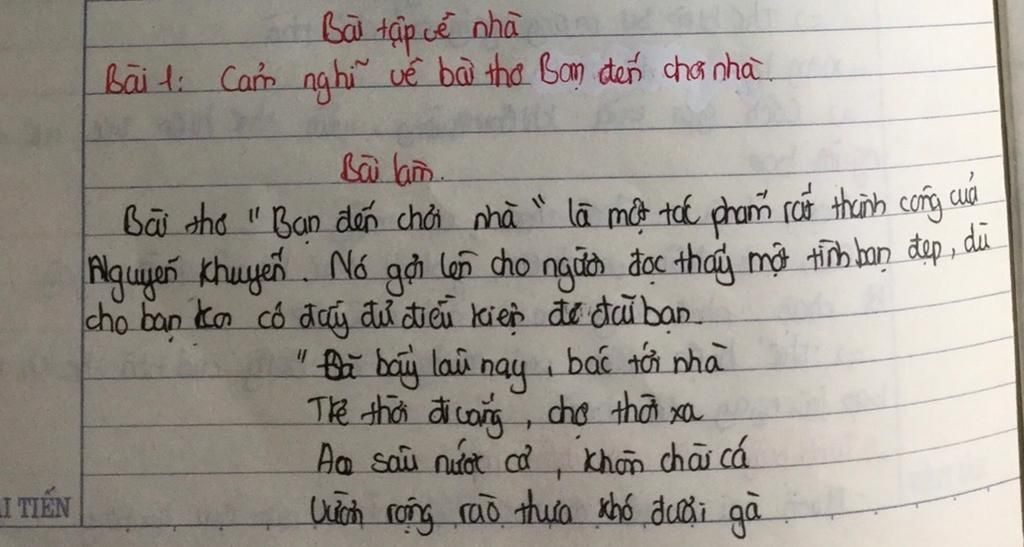 Bài tập về nhà
Bài 1: Cảm nghĩ về bài thơ Bạn đến chơi nhà.
Bài làm.
Bài thơ "Bạn đến chơi nhà" là một tác phẩm rất thành công của
Nguyễn Khuyến. Nó gợi lên cho người đọc thấy một tình bạn đẹp, dù
cho bạn có đầy đủ điều kiện để đãi bạn.
"Đã bấy lâu nay, bác tới nhà
Trẻ thời đi vắng, chợ thời xa
Ao sâu nước cả, khôn chài cá
Vườn rộng rào thưa khó đuổi gà
I TIẾN